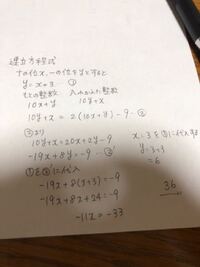 連立方程式
十の位x,一の位をyとすると
y=x+3 ー①
もとの整数 入れかえた数
10x+y 10y+x
10y+x = 2(10x+y)-9 -②
②より
10y+x=20x+2y-9
-19x+8y=-9 -②'
①を②'に代入
-19x+8(x+3)=-9
-19x+8x+24=-9
-11x=-33
x=3を①に代入する
y=3+3
=6
36